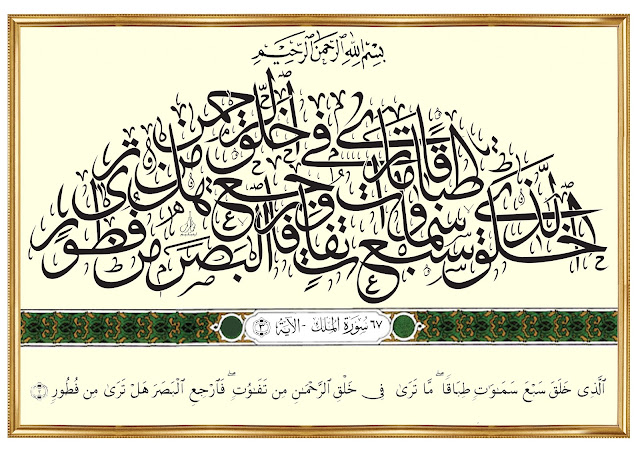 بِسْمِ ٱللَّهِ ٱلرَّحْمَٰنِ ٱلرَّحِيمِ
ٱلَّذِى خَلَقَ سَبْعَ سَمَٰوَٰتٍ طِبَاقًا مَّا تَرَىٰ فِى خَلْقِ ٱلرَّحْمَٰنِ مِن تَفَٰوُتٍ فَٱرْجِعِ ٱلْبَصَرَ هَلْ تَرَىٰ مِن فُطُورٍ
٦٧ سُورَةُ المُلك - الآية ﴿٣﴾
ٱلَّذِى خَلَقَ سَبْعَ سَمَٰوَٰتٍ طِبَاقًا ۖ مَّا تَرَىٰ فِى خَلْقِ ٱلرَّحْمَٰنِ مِن تَفَٰوُتٍ ۖ فَٱرْجِعِ ٱلْبَصَرَ هَلْ تَرَىٰ مِن فُطُورٍ ﴿٣﴾